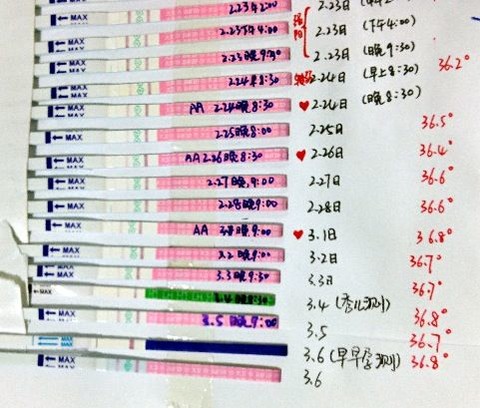 2.23日
MAX 2.23 2:00
MAX 2.23下午4:00 2.23日 (下午4:00)
MAX 2.23晚9:30 2.23日 (晚9:30)
MAX 2.24早8:30 2.24日 (早上8:30) 36.2°
MAX AA 2.24晚8:30 ♥ 2.24日 (晚8:30)
MAX 2.25晚8:00 2.25日 36.5°
MAX AA 2.26晚8:30 ♥ 2.26日 36.4°
MAX 2.27晚9:00 2.27日 36.6°
MAX 2.28晚9:00 2.28日 36.6°
MAX AA 3.1晚9:00 ♥ 3.1日 36.8°
MAX 3.2晚9:00 3.2日 36.7°
MAX 3.3晚9:30 3.3日 36.7°
MAX 3.4晚8:30 3.4 36.8°
MAX 3.5晚9:00 3.5 36.7°
MAX 3.6 (早早孕测) 36.8°
MAX 3.6